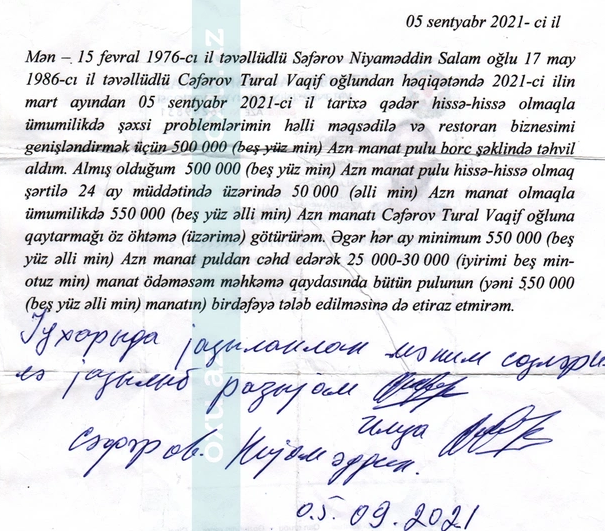 05 sentyabr 2021- ci il
Mən – 15 fevral 1976-cı il təvəllüdlü Səfərov Niyaməddin Salam oğlu 17 may
1986-cı il təvəllüdlü Cəfərov Tural Vaqif oğlundan həqiqətəndə 2021-ci ilin
mart ayından 05 sentyabr 2021-ci il tarixə qədər hissə-hissə olmaqla
ümumilikdə şəxsi problemlərimin həlli məqsədilə və restoran biznesimi
genişləndirmək üçün 500 000 (beş yüz min) Azn manat pulu borc şəklində təhvil
aldım. Almış olduğum 500 000 (beş yüz min) Azn manat pulu hissə-hissə olmaq
şərtilə 24 ay müddətində üzərində 50 000 (əlli min) Azn manat olmaqla
ümumilikdə 550 000 (beş yüz əlli min) Azn manatı Cəfərov Tural Vaqif oğluna
qaytarmağı öz öhtəmə (üzərimə) götürürəm. Əgər hər ay minimum 550 000 (beş
yüz əlli min) Azn manat puldan cəhd edərək 25 000-30 000 (iyirimi beş min-
otuz min) manat ödəməsəm məhkəmə qaydasında bütün pulunun (yəni 550 000
(beş yüz əlli min) manatın) birdəfəyə tələb edilməsinə də etiraz etmirəm.
Јухарыда јазыланлан мәним сөзләрим
лә јазылыб разыјам
Имза
Сәфәров Нијамәддин.
05.09.2021
oxu.az